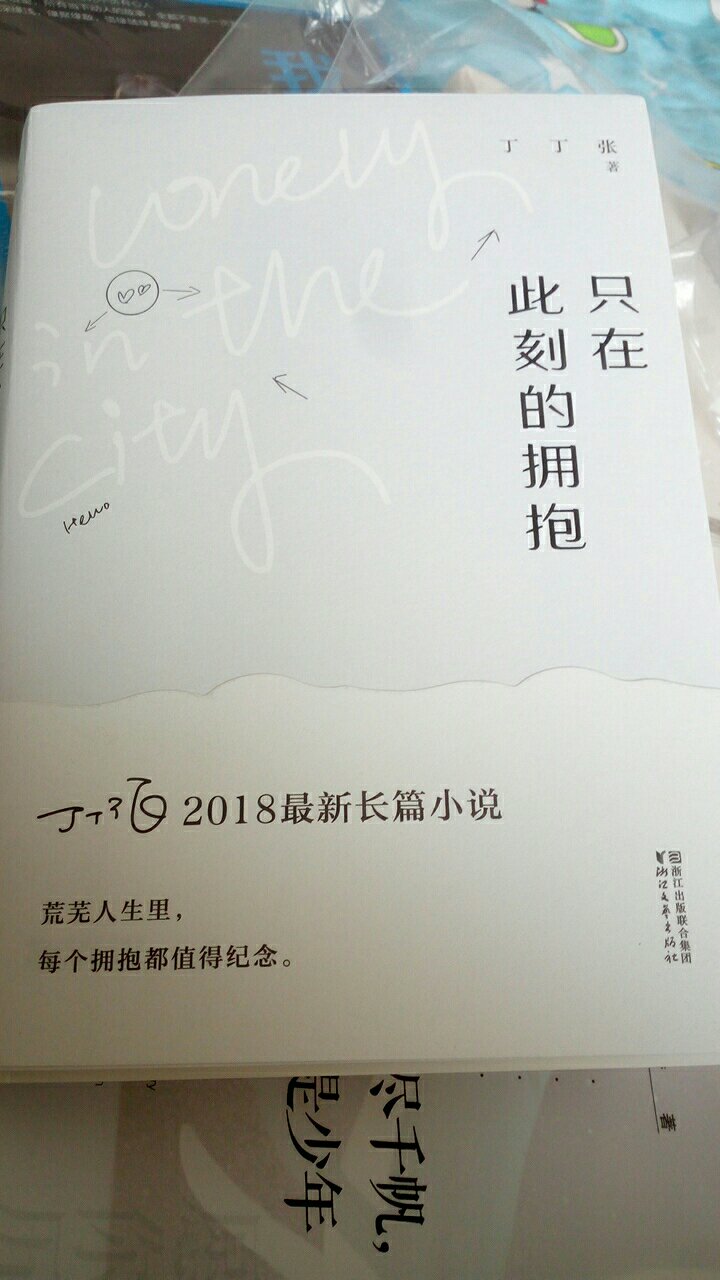 丁丁张
著
只在
此刻的拥抱
Lonely
in the
city
Hello
丁丁张 2018最新长篇小说
荒芜人生里，
每个拥抱都值得纪念。
浙江出版联合集团
浙江文艺出版社
尽千帆，
是少年
著